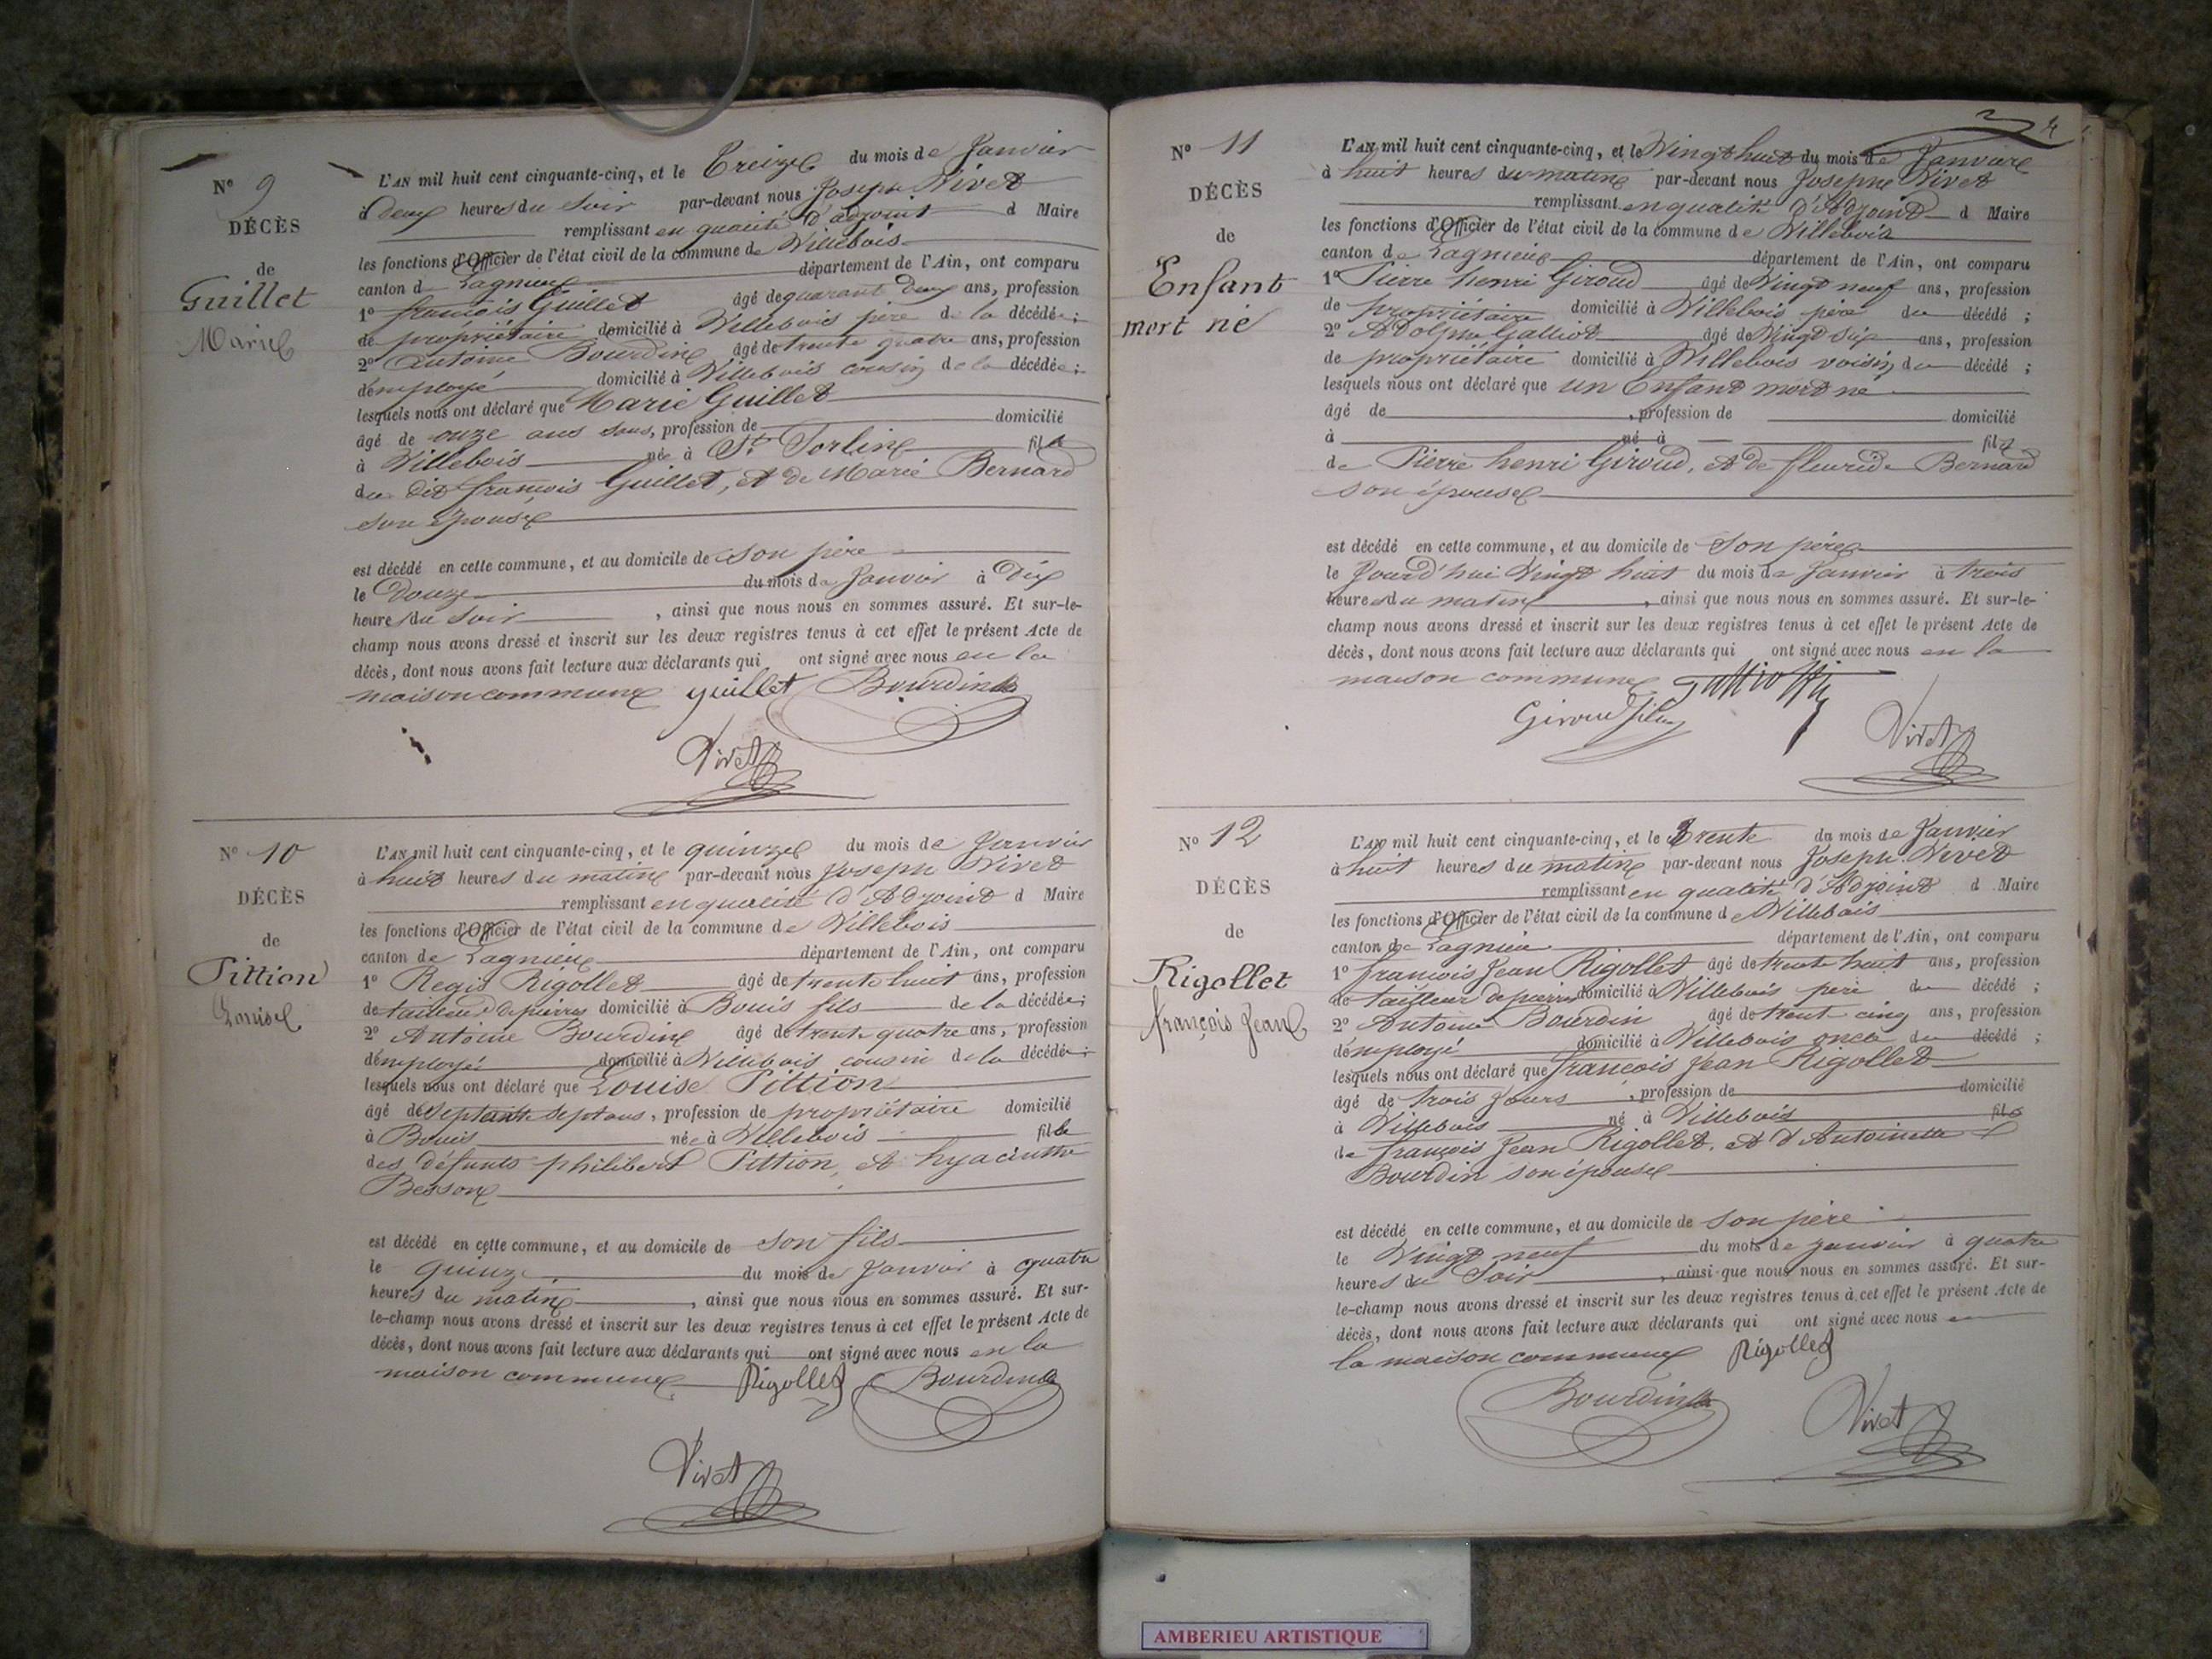 N° 9
DÉCÈS
de
Guillet
Marie
L'AN mil huit cent cinquante-cinq, et le Treize du mois de Janvier
à deux heures du soir par-devant nous Joseph Vivet
remplissant en qualité d'adjoint d Maire
les fonctions d'Officier de l'état civil de la commune de Villebois
canton de Lagnieu département de l'Ain, ont comparu
1° françois Guillet âgé de quarant deux ans, profession
de propriétaire domicilié à Villebois père de la décédée ;
2° Antoine Bourdin âgé de trente quatre ans, profession
d'employé domicilié à Villebois cousin de la décédée ;
lesquels nous ont déclaré que Marie Guillet
âgé de onze ans , profession de domicilié
à Villebois née à St. Sorlin fille
du dit françois Guillet, et de Marie Bernard
son épouse
est décédé en cette commune, et au domicile de son père
le Douze du mois de Janvier à Dix
heures du soir , ainsi que nous nous en sommes assuré. Et sur-le-
champ nous avons dressé et inscrit sur les deux registres tenus à cet effet le présent Acte de
décès, dont nous avons fait lecture aux déclarants qui ont signé avec nous en la
maison commune guillet Bourdin
Vivet
N° 10
DÉCÈS
de
Pittion
Louise
L'AN mil huit cent cinquante-cinq, et le quinze du mois de Janvier
à huit heures du matin par-devant nous Joseph Vivet
remplissant en qualité d'Adjoint d Maire
les fonctions d'Officier de l'état civil de la commune de Villebois
canton de Lagnieu département de l'Ain, ont comparu
1° Regis Rigollet âgé de trente huit ans, profession
de tailleur de pierres domicilié à Bouis fils de la décédée ;
2° Antoine Bourdin âgé de trente quatre ans, profession
d'employé domicilié à Villebois cousin de la décédée ;
lesquels nous ont déclaré que Louise Pittion
âgé de septante sept ans, profession de propriétaire domicilié
à Bouis née à Villebois fille
des défunts philibert Pittion, et hyacinthe
Besson
est décédé en cette commune, et au domicile de son fils
le quinze du mois de Janvier à quatre
heures du matin , ainsi que nous nous en sommes assuré. Et sur-
le-champ nous avons dressé et inscrit sur les deux registres tenus à cet effet le présent Acte de
décès, dont nous avons fait lecture aux déclarants qui ont signé avec nous en la
maison commune Rigollet Bourdin
Vivet
4
N° 11
DÉCÈS
de
Enfant
mort né
L'AN mil huit cent cinquante-cinq, et le Vingt huit du mois de Janvier
à huit heures du matin par-devant nous Joseph Vivet
remplissant en qualité d'Adjoint d Maire
les fonctions d'Officier de l'état civil de la commune de Villebois
canton de Lagnieu département de l'Ain, ont comparu
1° Pierre henri Giroud âgé de Vingt neuf ans, profession
de propriétaire domicilié à Villebois père du décédé ;
2° Adolphe Galliot âgé de Vingt six ans, profession
de propriétaire domicilié à Villebois voisin du décédé ;
lesquels nous ont déclaré que un Enfant mort né
âgé de , profession de domicilié
à né à fils
de Pierre henri Giroud, et de fleurie Bernard
son épouse
est décédé en cette commune, et au domicile de son père
le Jourd'hui Vingt huit du mois de Janvier à trois
heures du matin , ainsi que nous nous en sommes assuré. Et sur-le-
champ nous avons dressé et inscrit sur les deux registres tenus à cet effet le présent Acte de
décès, dont nous avons fait lecture aux déclarants qui ont signé avec nous en la
maison commune
Giroud fils Vivet
N° 12
DÉCÈS
de
Rigollet
françois Jean
L'AN mil huit cent cinquante-cinq, et le Trente du mois de Janvier
à huit heures du matin par-devant nous Joseph Vivet
remplissant en qualité d'Adjoint d Maire
les fonctions d'Officier de l'état civil de la commune de Villebois
canton de Lagnieu département de l'Ain, ont comparu
1° françois Jean Rigollet âgé de trente huit ans, profession
de tailleur de pierre domicilié à Villebois père du décédé ;
2° Antoine Bourdin âgé de trent cinq ans, profession
d'employé domicilié à Villebois oncle du décédé ;
lesquels nous ont déclaré que françois Jean Rigollet
âgé de trois jours , profession de domicilié
à Villebois né à Villebois fils
de françois Jean Rigollet, et d'Antoinette
Bourdin son épouse
est décédé en cette commune, et au domicile de son père
le Vingt neuf du mois de janvier à quatre
heures du Soir , ainsi que nous nous en sommes assuré. Et sur-
le-champ nous avons dressé et inscrit sur les deux registres tenus à cet effet le présent Acte de
décès, dont nous avons fait lecture aux déclarants qui ont signé avec nous en
la maison commune Rigollet
Bourdin Vivet
AMBERIEU ARTISTIQUE